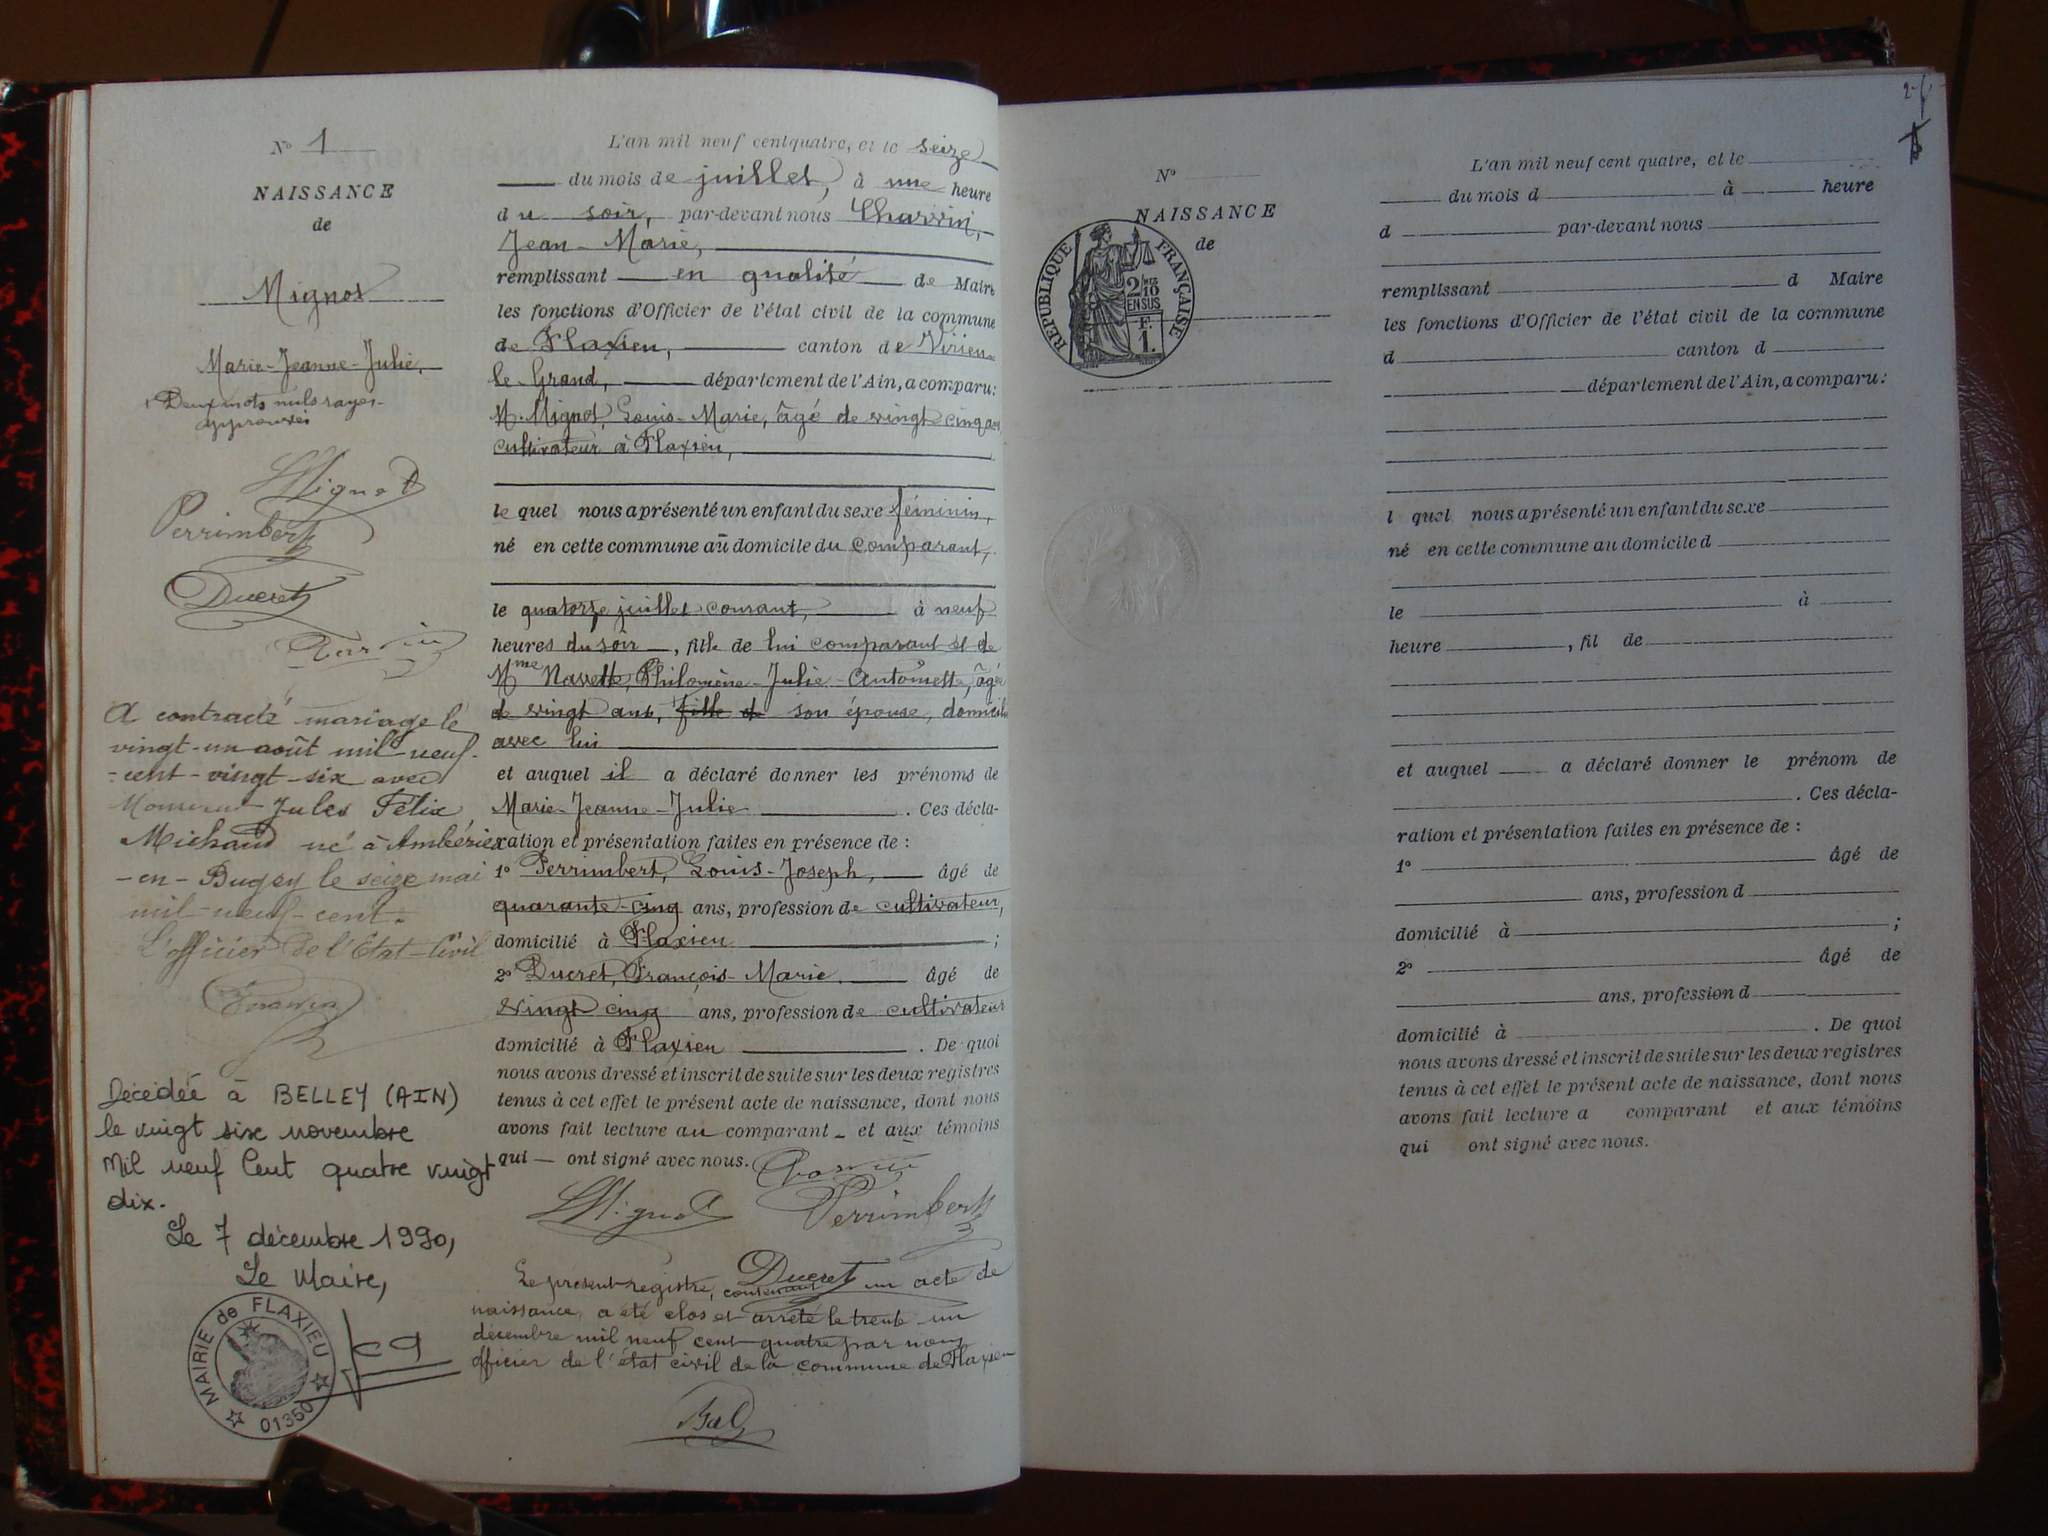 N° 1
NAISSANCE
de
Mignot
Marie-Jeanne-Julie,
Deux mots nuls rayés
approuvés
LMignot
Perrimbert
Ducret
A contracté mariage le
vingt-un août mil neuf-
-cent-vingt-six avec
Monsieur Jules Félix
Michaud né à Ambérieu
-en-Bugey le seize mai
mil-neuf-cent.
L'officier de l'Etat-Civil
Décédée à BELLEY (AIN)
le vingt six novembre
Mil neuf Cent quatre vingt
dix.
Le 7 décembre 1990,
Le Maire,
MAIRIE de FLAXIEU
01350
L'an mil neuf cent quatre, et le seize
du mois de juillet, à une heure
du soir, par-devant nous Charvin,
Jean-Marie,
remplissant en qualité de Maire
les fonctions d'Officier de l'état civil de la commune
de Flaxieu, canton de Virieu-
le Grand, département de l'Ain, a comparu:
M. Mignot, Louis-Marie, âgé de vingt cinq ans
cultivateur à Flaxieu,
lequel nous a présenté un enfant du sexe féminin,
né en cette commune au domicile du comparant,
le quatorze juillet courant, à neuf
heures du soir, fille de lui comparant et de
Mme Philomène-Julie-Antoinette, âgée
de vingt ans, fille de son épouse, domicil
avec lui
et auquel il a déclaré donner les prénoms de
Marie-Jeanne-Julie. Ces décla-
ration et présentation faites en présence de :
1° Perrimbert, Louis-Joseph, âgé de
quarante-cinq ans, profession de cultivateur,
domicilié à Flaxieu ;
2° Ducret, François-Marie. âgé de
vingt cinq ans, profession de cultivateur
domicilié à Flaxieu . De quoi
nous avons dressé et inscrit de suite sur les deux registres
tenus à cet effet le présent acte de naissance, dont nous
avons fait lecture au comparant - et aux témoins
qui — ont signé avec nous.
LMignot Perrimbert
Ducret
Le présent registre, contenant un acte de
naissance, a été clos et arrêté le trente-un
décembre mil neuf cent quatre par nous
officier de l'état civil de la commune de Flaxieu
2
N°
NAISSANCE
de
REPUBLIQUE FRANÇAISE
2/10
EN SUS
F.
1.
L'an mil neuf cent quatre, et le
du mois d à heure
d par-devant nous
remplissant d Maire
les fonctions d'Officier de l'état civil de la commune
d canton d
département de l'Ain, a comparu:
l quel nous a présenté un enfant du sexe
né en cette commune au domicile d
le à
heure , fil de
et auquel a déclaré donner le prénom de
. Ces décla-
ration et présentation faites en présence de :
1° âgé de
ans, profession d
domicilié à ;
2° âgé de
ans, profession d
domicilié à . De quoi
nous avons dressé et inscrit de suite sur les deux registres
tenus à cet effet le présent acte de naissance, dont nous
avons fait lecture a comparant et aux témoins
qui ont signé avec nous.